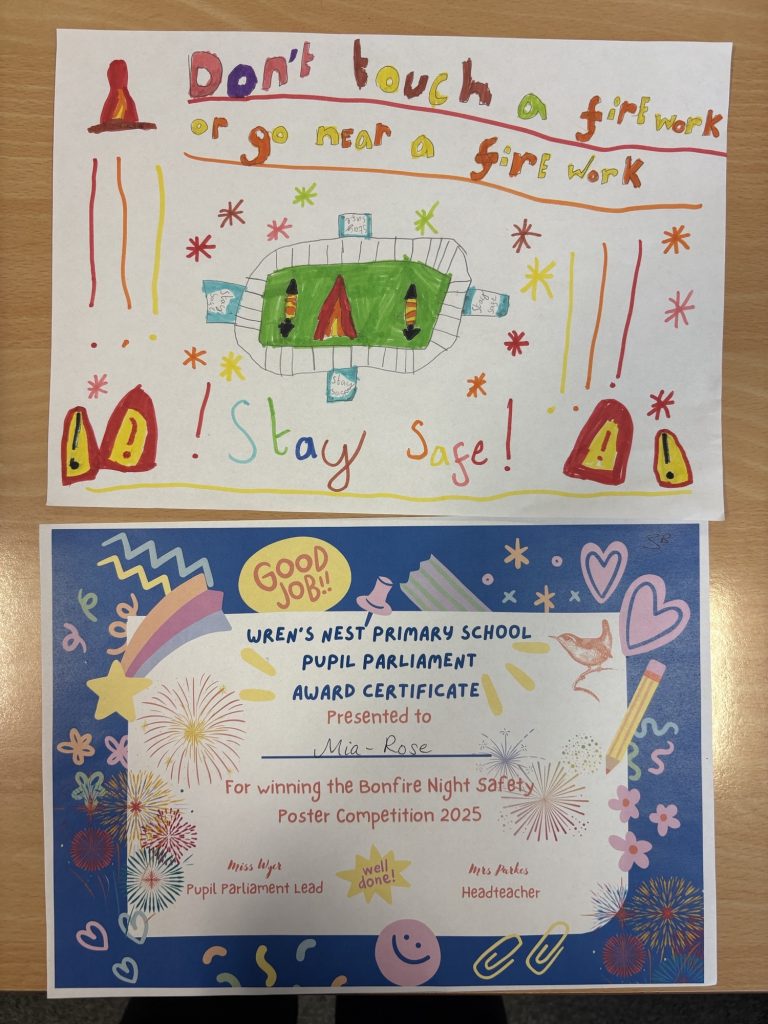 Don't touch a firework
or go near a firework
Stay safe
Stay safe
Stay safe
Stay safe
! Stay safe!
!
!
!
!
GOOD
JOB!!
SB
WREN'S NEST PRIMARY SCHOOL
PUPIL PARLIAMENT
AWARD CERTIFICATE
Presented to
Mia-Rose
For winning the Bonfire Night Safety
Poster Competition 2025
Miss Wyer
Pupil Parliament Lead
well
done!
Mrs Parkes
Headteacher